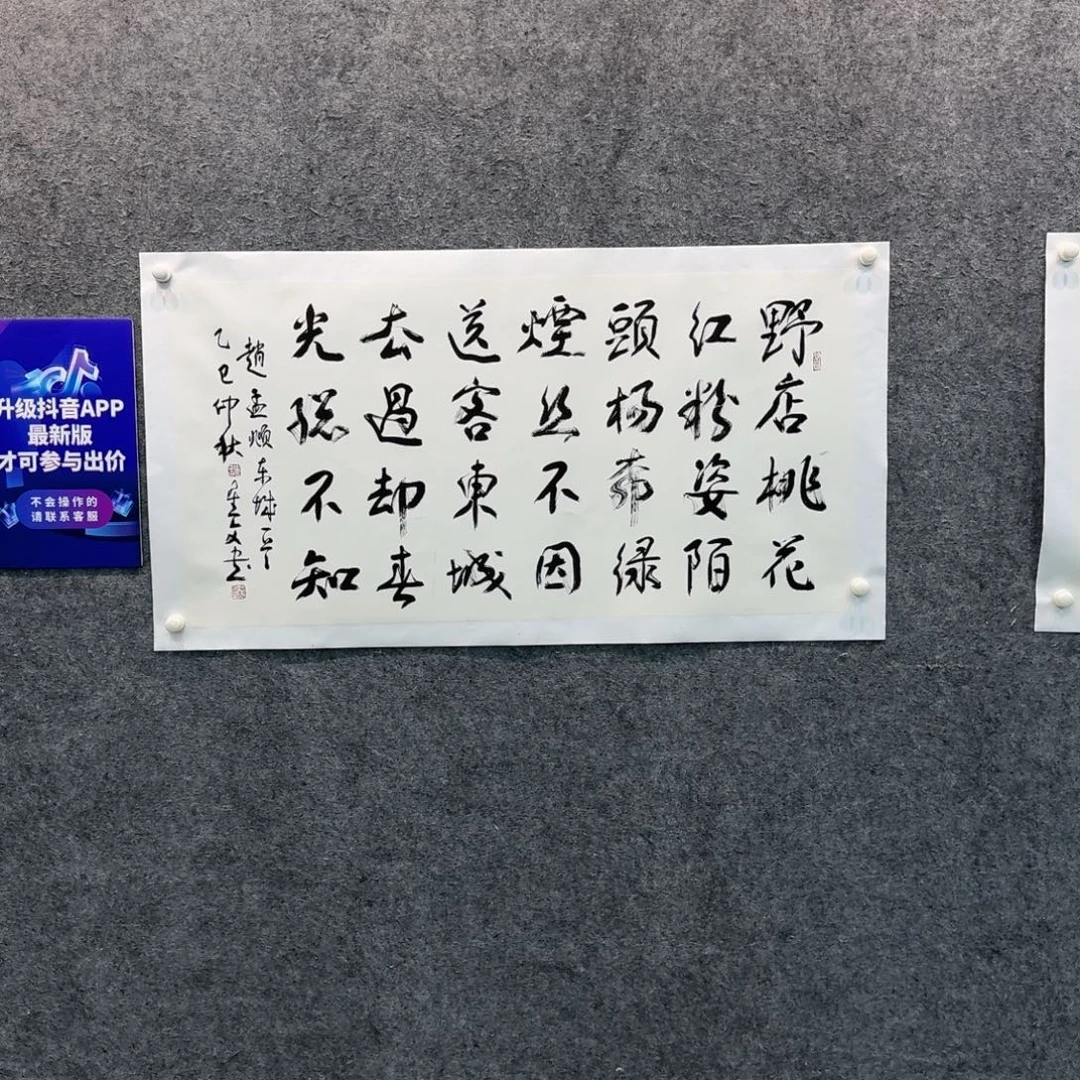 野店桃花
红粉姿陌
頭楊柳绿
煙丝不因
送客東城
去過却春
光總不知
趙孟頫东城
乙巳仲秋
升级抖音APP
最新版
才可参与出价
不会操作的
请联系客服